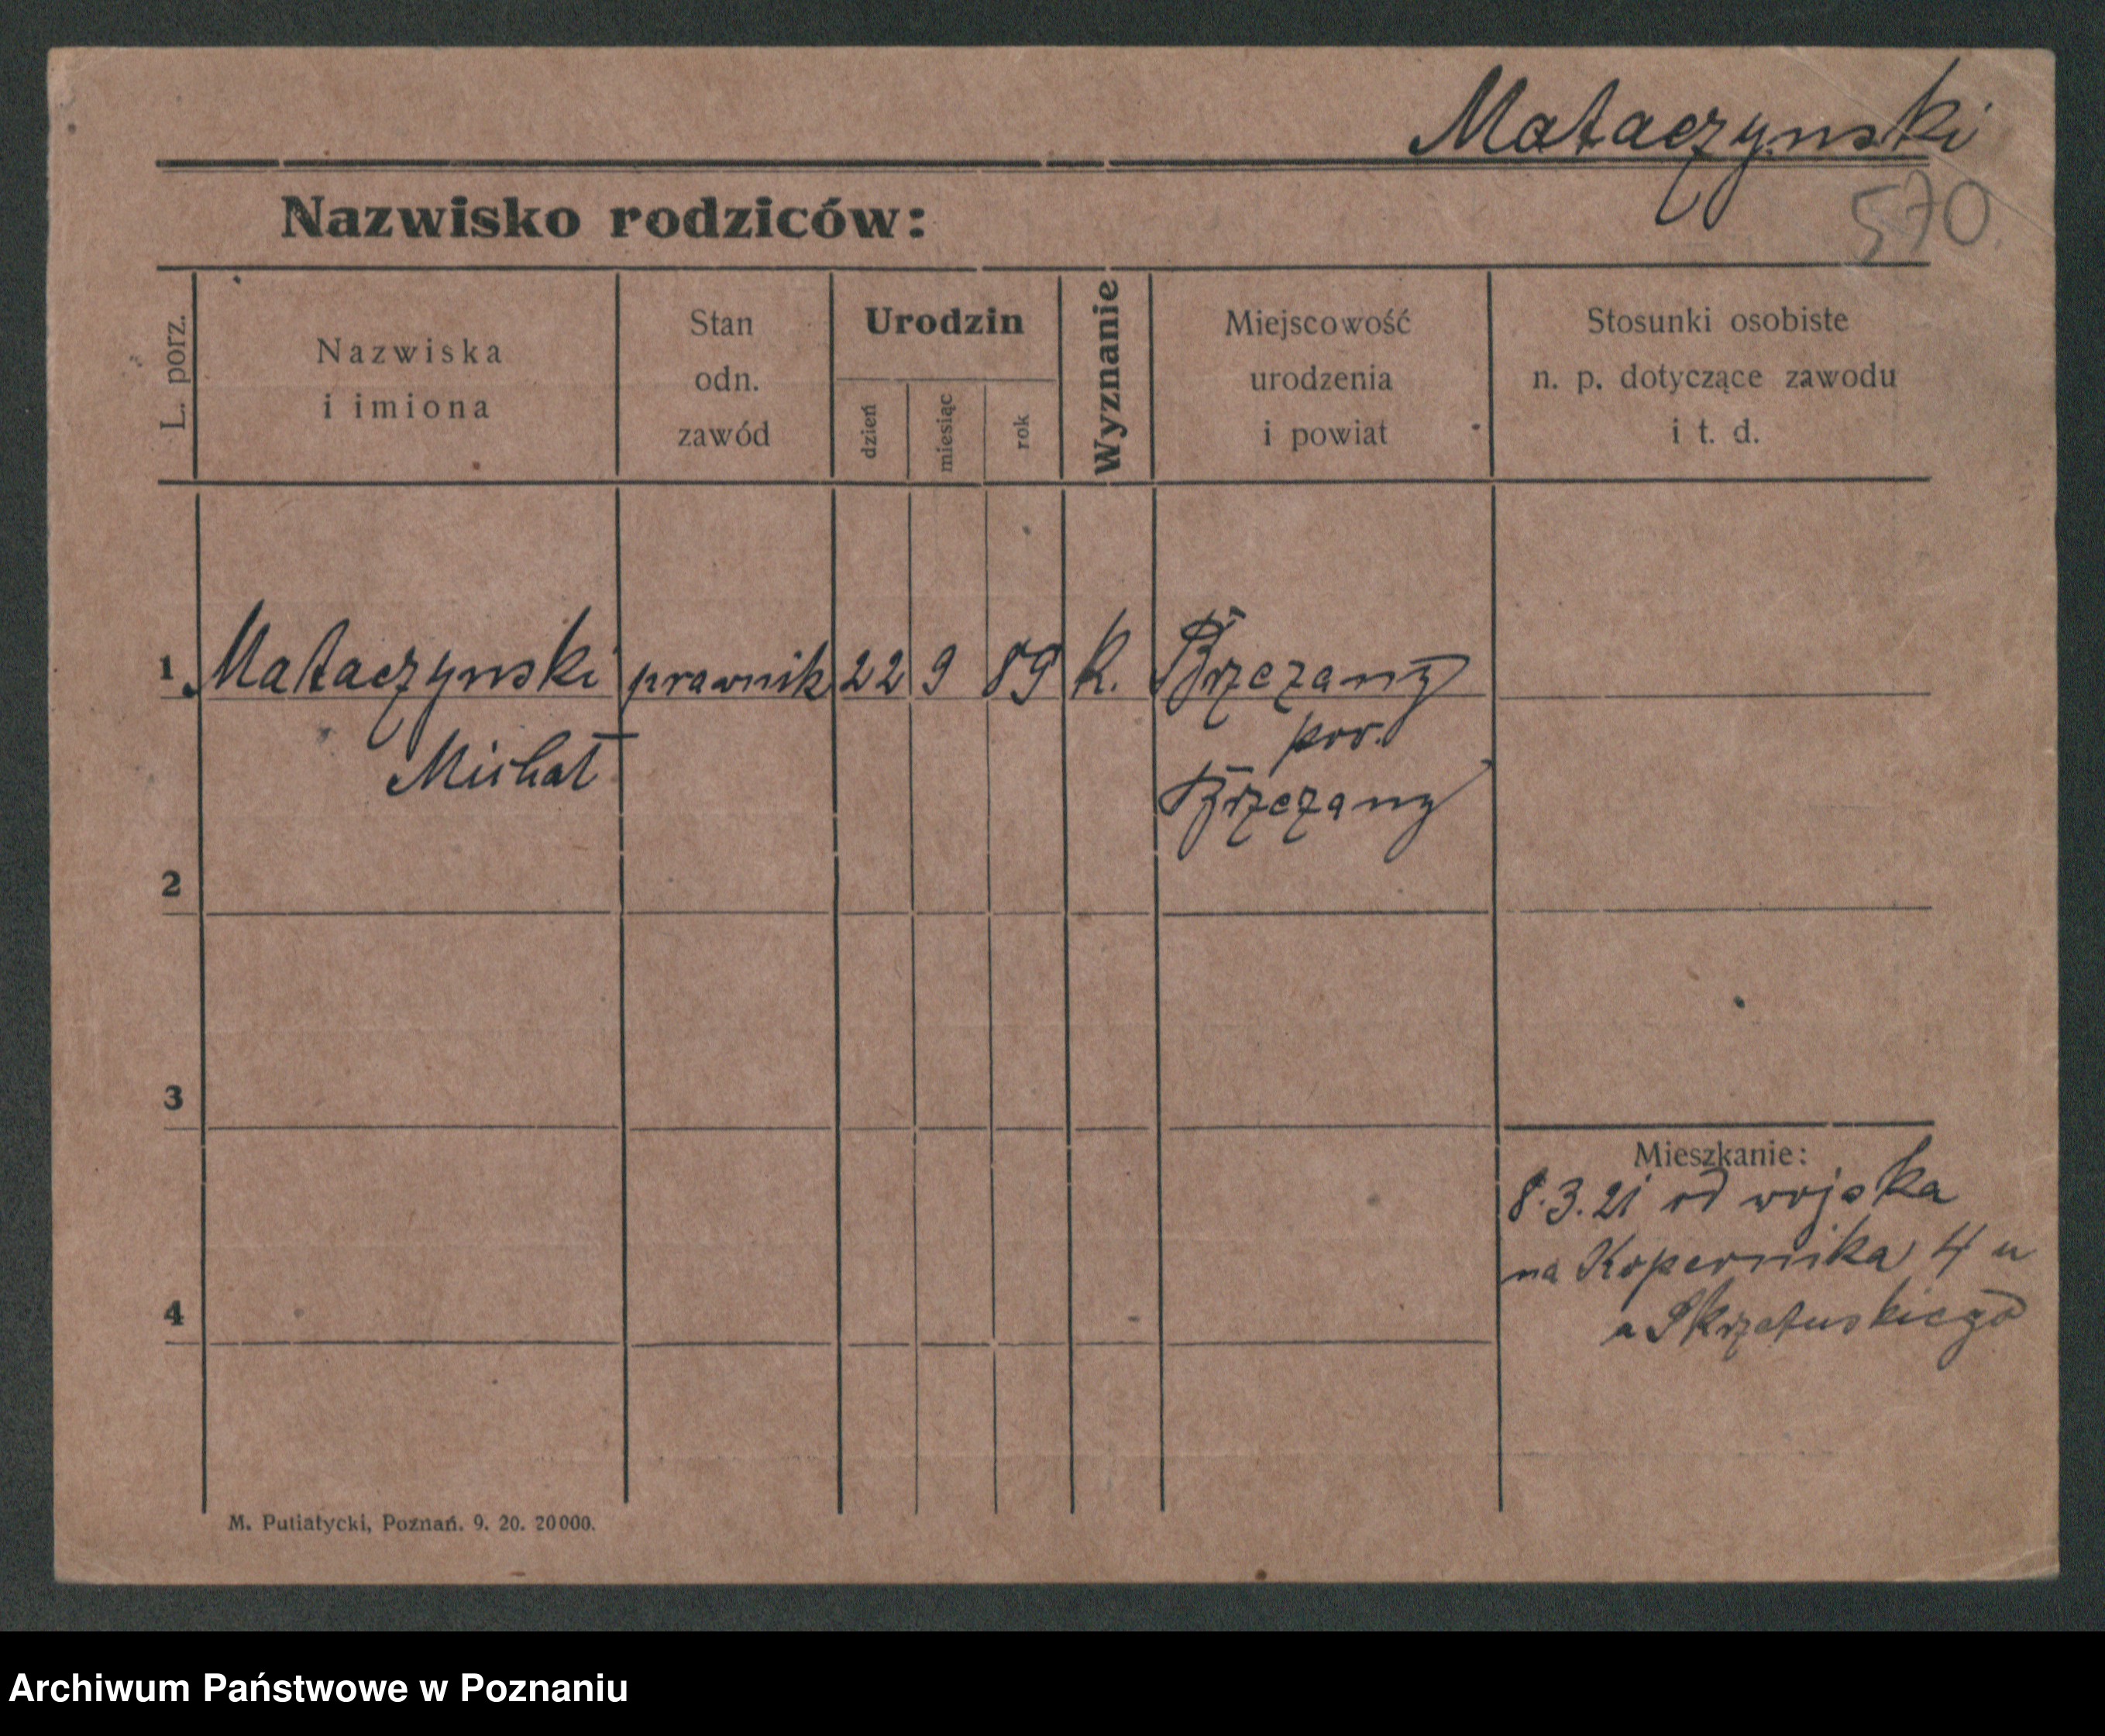 Mataczynski
570
Nazwisko rodziców:
L. porz.
Nazwiska
i imiona
Stan
odn.
zawód
Urodzin
dzień
miesiąc
rok
Wyznanie
Miejscowość
urodzenia
i powiat
Stosunki osobiste
n. p. dotyczące zawodu
i t. d.
1 Mataczynski prawnik 22 9 89 k. Brzezany
Michał
pow.
Brzezany
2
3
4
Mieszkanie:
8.3.21 od wojska
na Kopernika 4 u
a Skrzetuskiego
M. Putiatycki, Poznań. 9. 20. 20000.
Archiwum Państwowe w Poznaniu